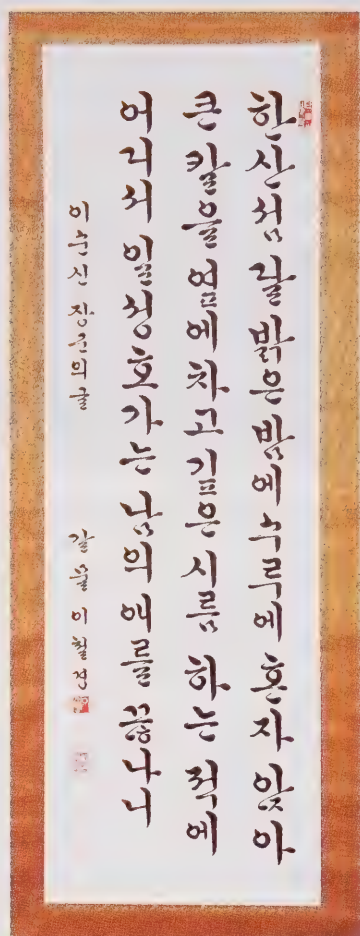 한산섬 달 밝은 밤에 수루에 혼자 앉아
큰 칼을 옆에 차고 깊은 시름 하는 적에
어디서 일성호가는 남의 애를 끊나니
이순신 장군의 글
갈물 이철경